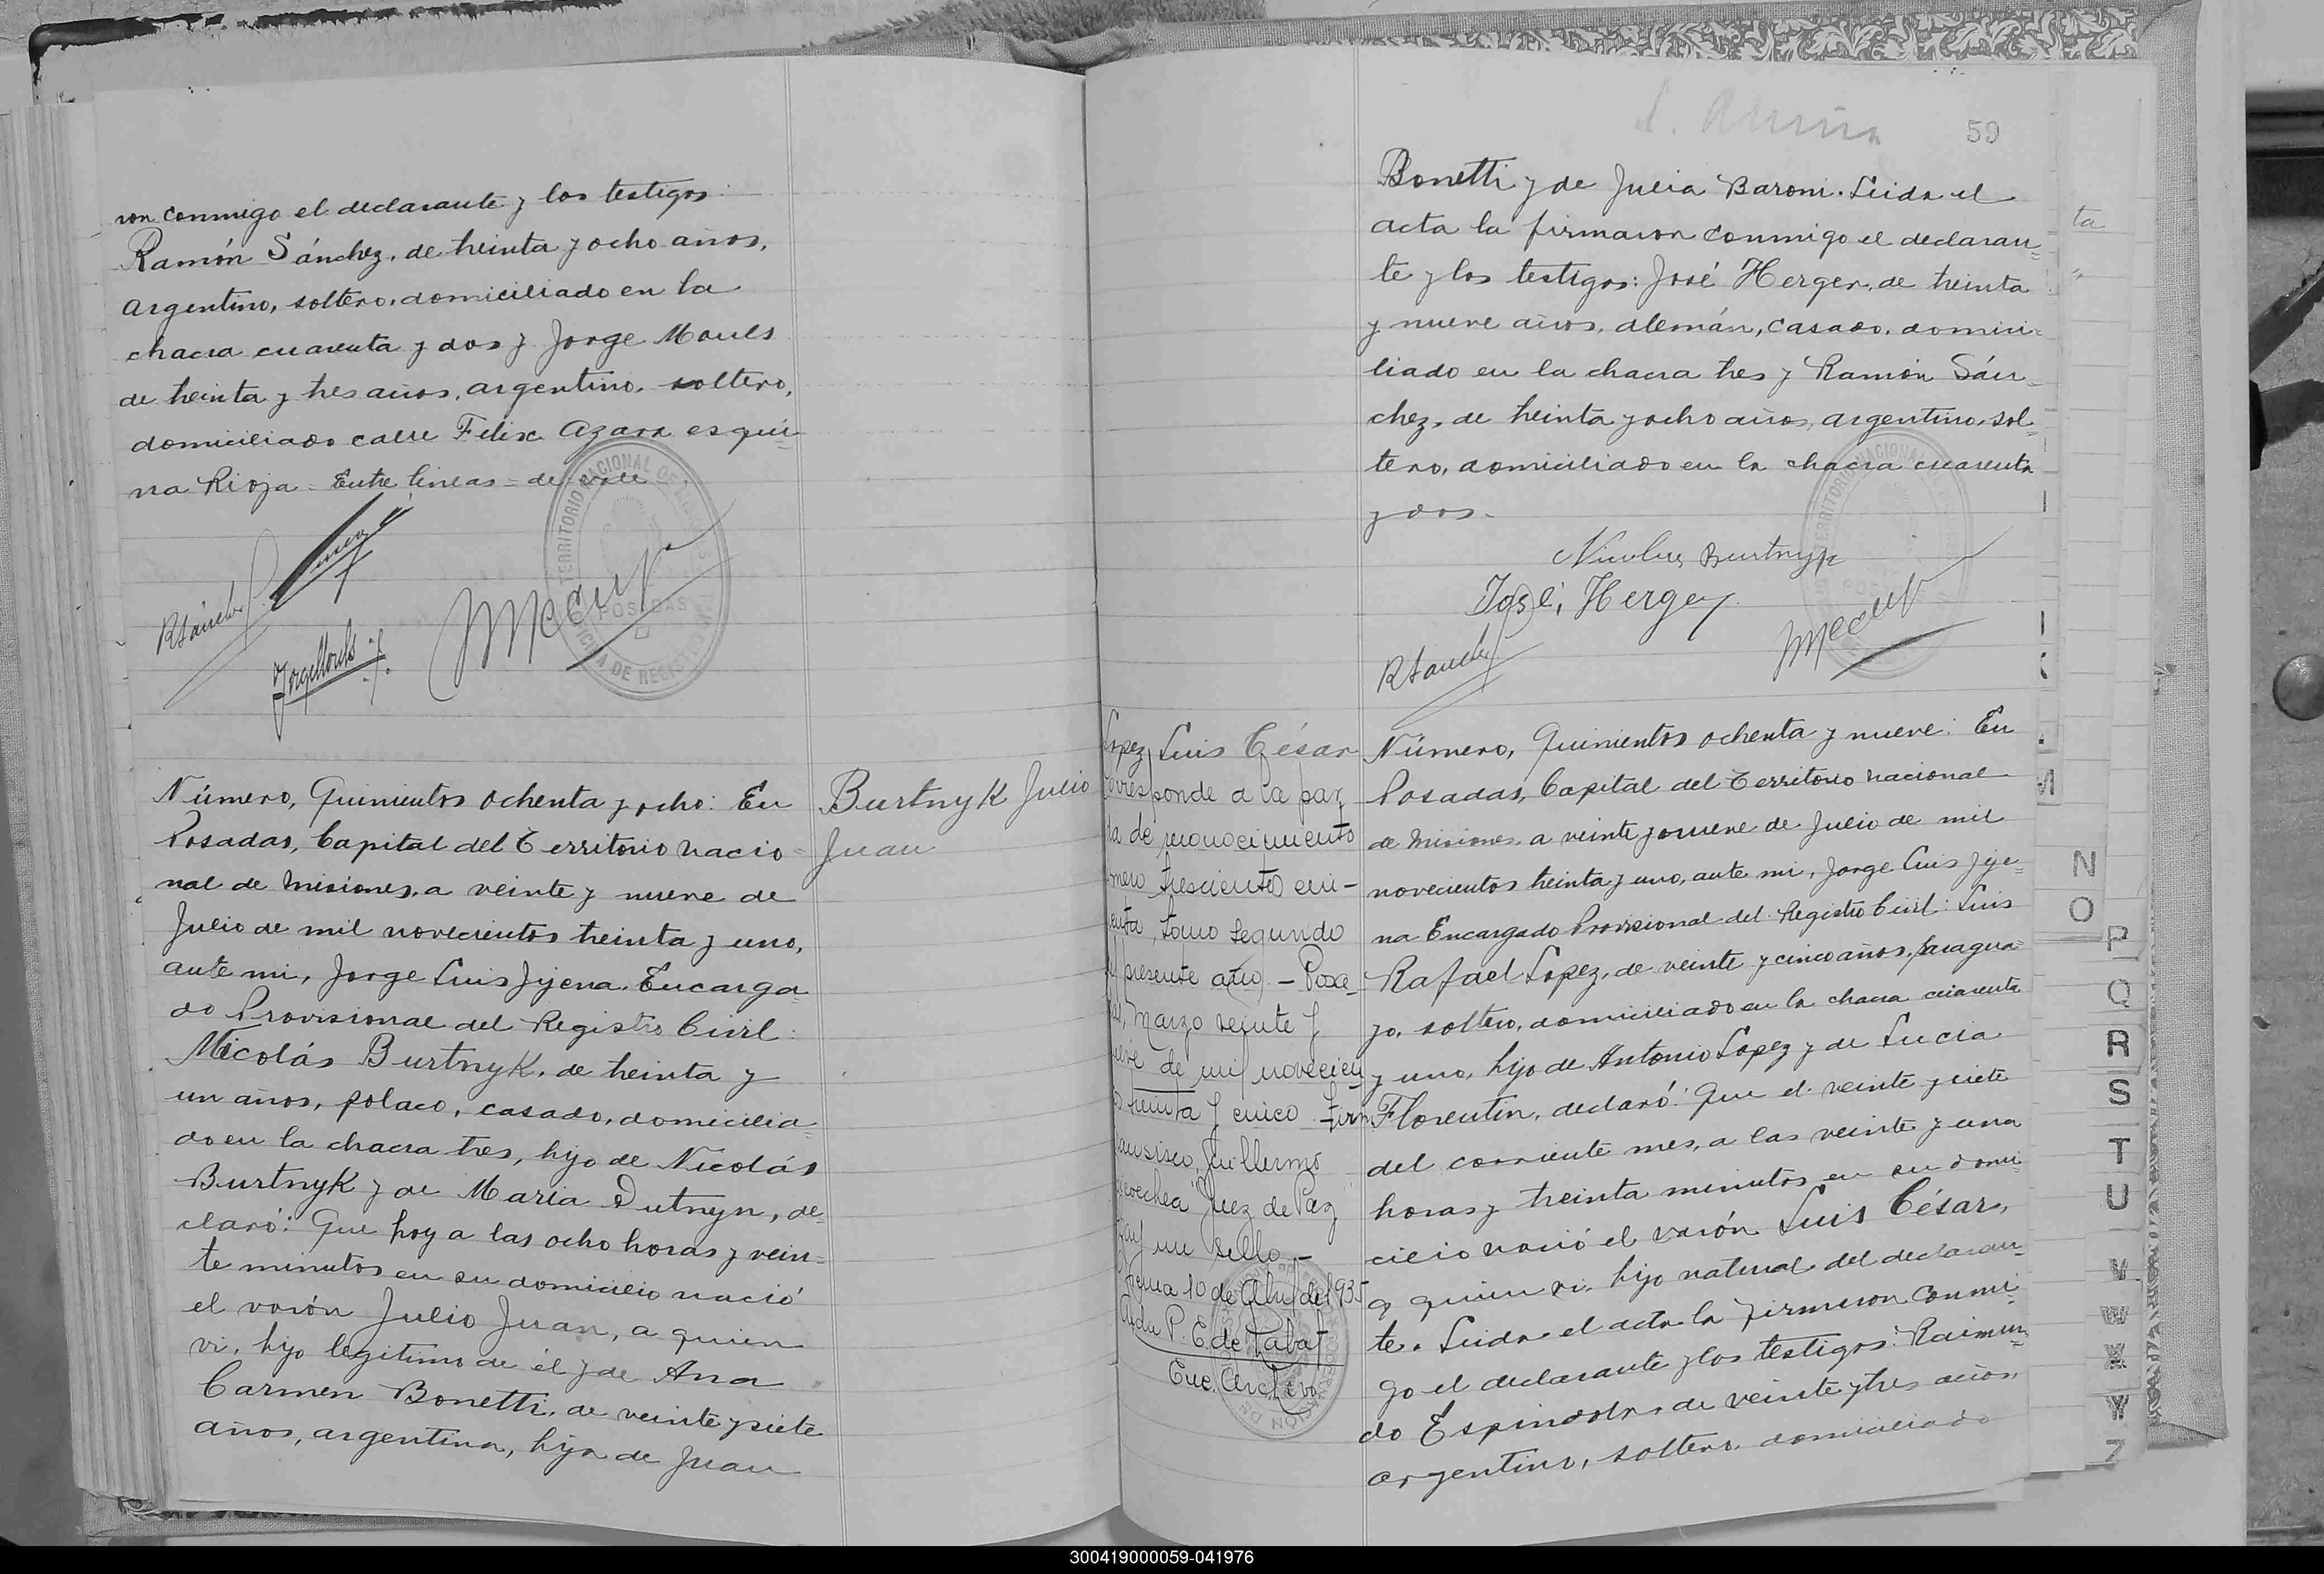 ron conmigo el declarante y los testigos:
Ramón Sánchez, de treinta y ocho años,
argentino, soltero, domiciliado en la
chacra cuarenta y dos y Jorge Mouls
de treinta y tres años, argentino, soltero,
domiciliado calle Felix Azara esqui=
na Rioja = Entre lineas = de vale
TERRITORIO NACIONAL DE MISIONES
POSADAS
OFICINA DE REGISTRO
RSánchez
JorgeMouls
Número, Quinientos ochenta y ocho: En
Posadas, Capital del Territorio nacio=
nal de Misiones, a veinte y nueve de
Julio de mil novecientos treinta y uno,
ante mi, Jorge Luis Jijena, Encarga
do Provisional del Registro Civil:
Nicolás Burtnyk, de treinta y
un años, polaco, casado, domicilia=
do en la chacra tres, hijo de Nicolás
Burtnyk y de Maria Dutnyn, de=
claró: Que hoy a las ocho horas y vein=
te minutos en su domicilio nació
el varón Julio Juan, a quien
vi, hijo legitimo de él y de Ana
Carmen Bonetti, de veinte y siete
años, argentina, hija de Juan
Burtnyk Julio
Juan
59
Bonetti y de Julia Baroni. Leida el
acta la firmaron conmigo el declaran=
te y los testigos: José Herger, de treinta
y nueve años, alemán, casado, domici=
liado en la chacra tres y Ramón Sán=
chez, de treinta y ocho años, argentino, sol=
tero, domiciliado en la chacra cuarenta
y dos.
Nicolas Burtnyk
José Herger
RSanchez
Lopez Luis César
Corresponde a la par
da de reconocimiento
mero trescientos cin-
enta, tomo segundo
el presente año - Posa-
das, Marzo veinte y
ueve de mil novecien
os treinta y cinco firm
Francisco Guillermo
Juez de Paz
hay un sello -
10 de Abril de 1935
Aida P. E. de Labat
Enc. Archivo
Número, Quinientos ochenta y nueve: En
Posadas, Capital del Territorio nacional
de Misiones, a veinte y nueve de Julio de mil
novecientos treinta y uno, ante mi, Jorge Luis Jije=
na Encargado Provisional del Registro Civil: Luis
Rafael Lopez, de veinte y cinco años, paragua
yo, soltero, domiciliado en la chacra cuarenta
y uno, hijo de Antonio Lopez y de Lucia
Florentin, declaró: Que el veinte y siete
del corriente mes, a las veinte y una
horas y treinta minutos en su domi
cilio nació el varón Luis César,
a quien vi, hijo natural del declaran=
te. Leida el acta la firmaron conmi
go el declarante y los testigos: Raimun=
do Espindola, de veinte y tres años,
argentino, soltero, domiciliado
ta
"
M
N
O
P
Q
R
S
T
U
V
W
X
Y
Z
300419000059-041976